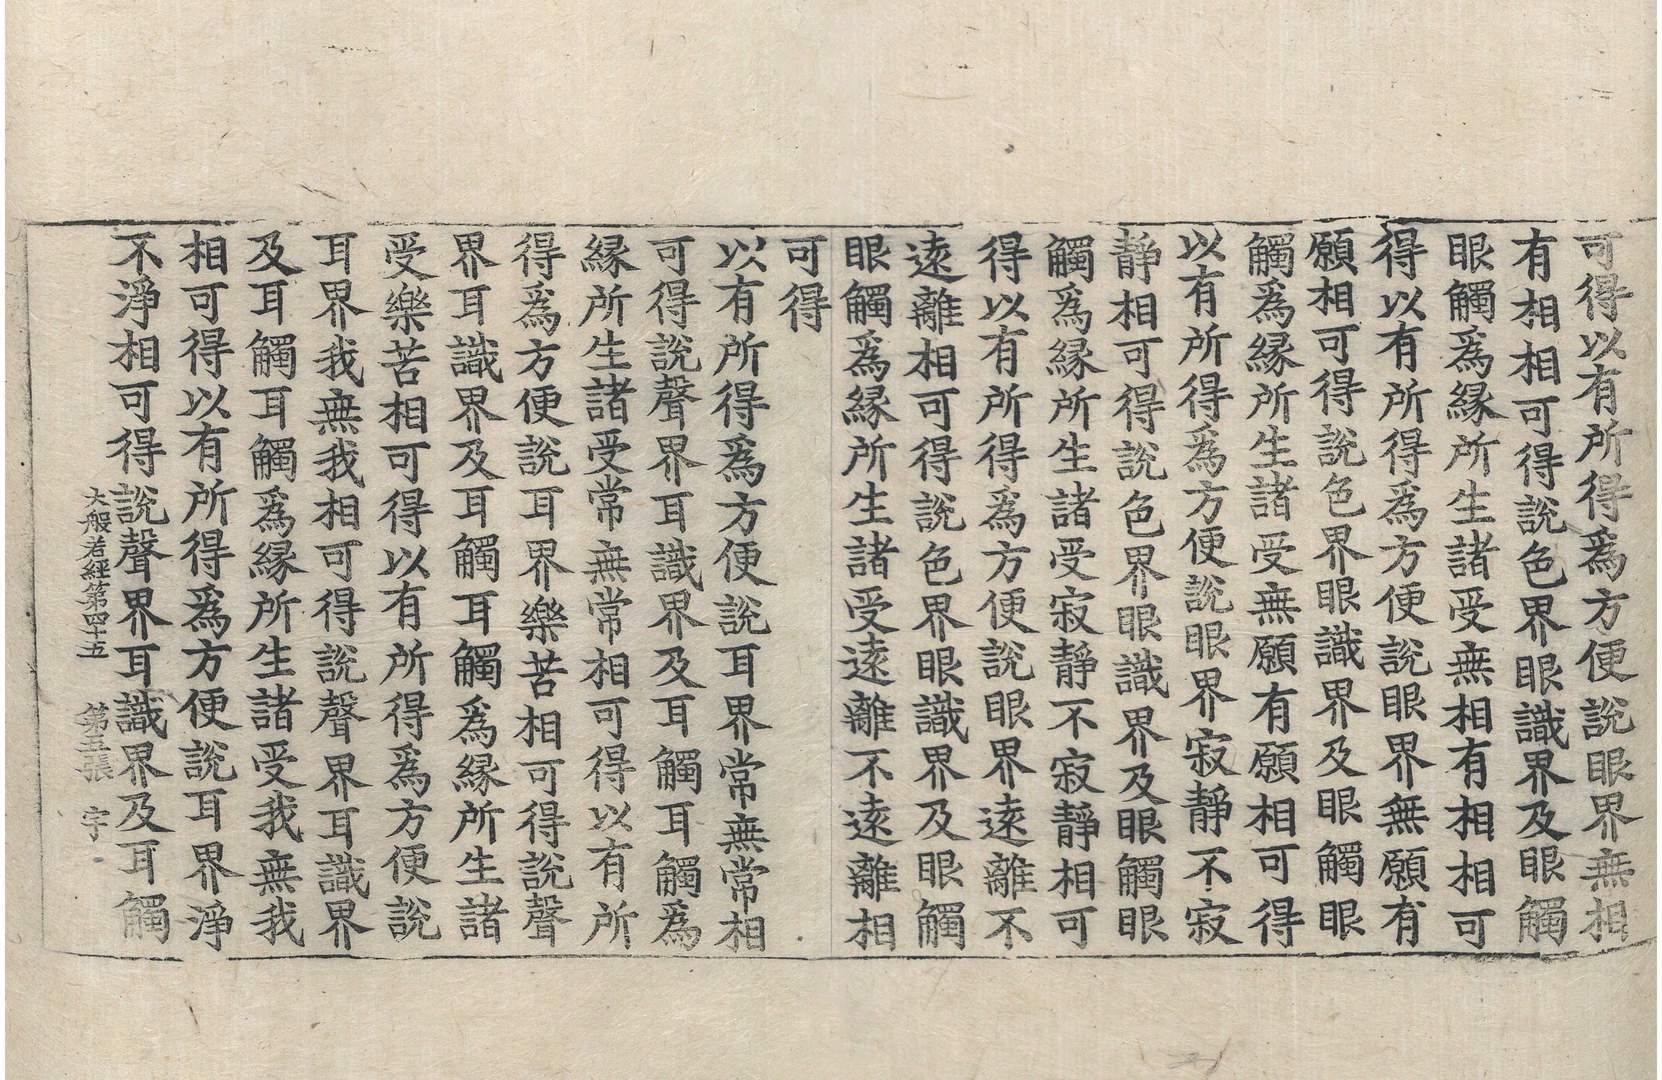 可得以有所得爲方便說眼界無相
有相相可得說色界眼識界及眼觸
眼觸爲縁所生諸受無相有相相可
得以有所得爲方便說眼界無願有
願相可得說色界眼識界及眼觸眼
觸爲縁所生諸受無願有願相可得
以有所得爲方便說眼界寂靜不寂
靜相可得說色界眼識界及眼觸眼
觸爲縁所生諸受寂靜不寂靜相可
得以有所得爲方便說眼界遠離不
遠離相可得說色界眼識界及眼觸
眼觸爲縁所生諸受遠離不遠離相
可得
以有所得爲方便說耳界常無常相
可得說聲界耳識界及耳觸耳觸爲
縁所生諸受常無常相可得以有所
得爲方便說耳界樂苦相可得說聲
界耳識界及耳觸耳觸爲縁所生諸
受樂苦相可得以有所得爲方便說
耳界我無我相可得說聲界耳識界
及耳觸耳觸爲縁所生諸受我無我
相可得以有所得爲方便說耳界淨
不淨相可得說聲界耳識界及耳觸
大般若經第四十五 第五張 宇